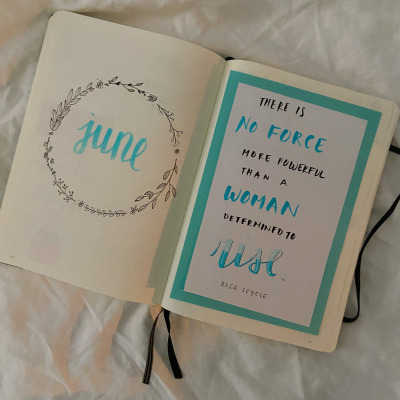 june
THERE IS
NO FORCE
MORE POWERFUL
THAN A
WOMAN
DETERMINED TO
RISE